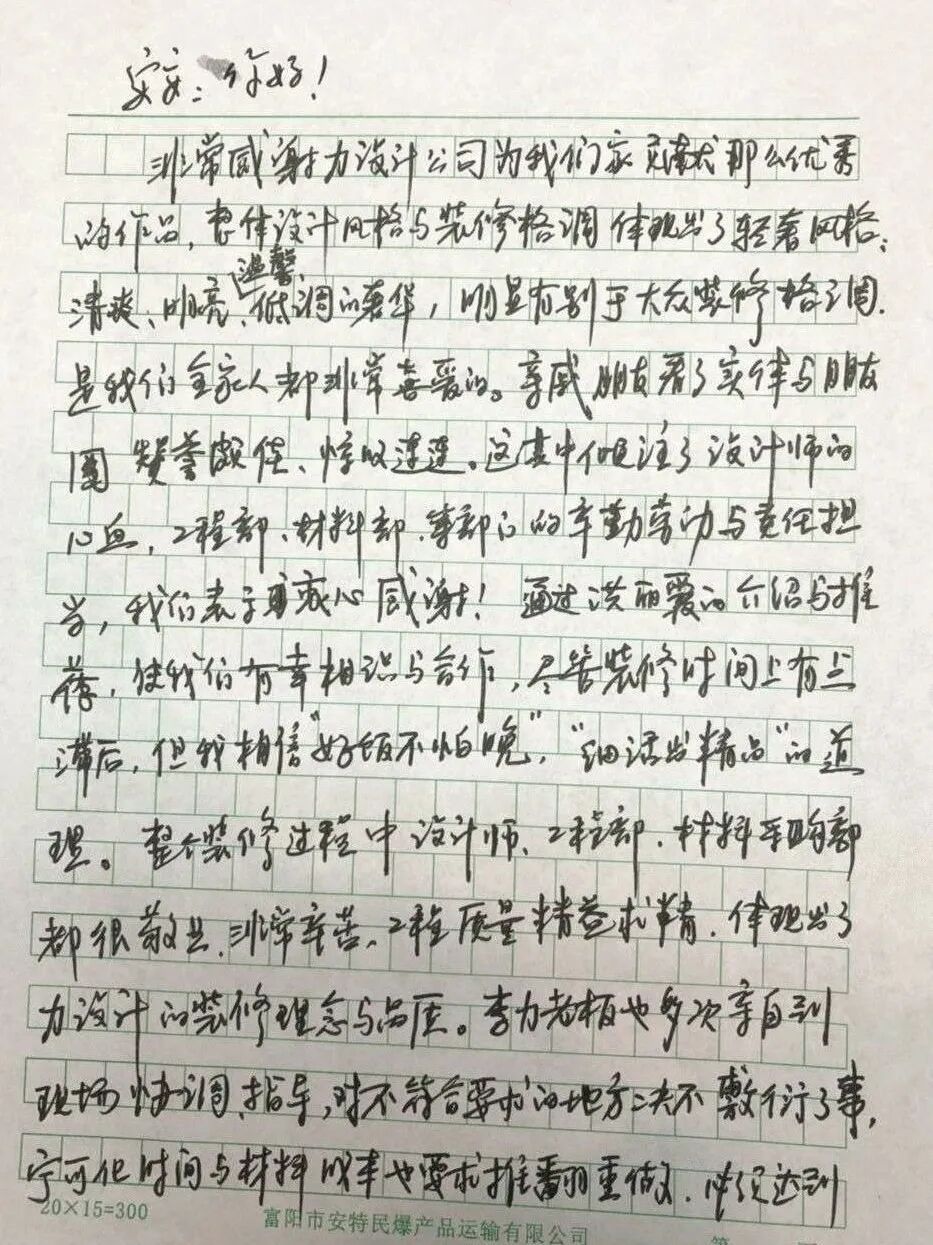 安安：你好！
非常感谢力设计公司为我们家贡献了那么优秀
的作品，整体设计风格与装修格调体现出了轻奢风格：
温馨、
清爽、明亮、低调的奢华，明显有别于大众装修格调.
是我们全家人都非常喜爱的。亲戚朋友看了实体与朋友
圈赞誉颇佳、惊叹连连。这其中倾注了设计师的
心血，工程部、材料部、等部门的辛勤劳动与责任担
当，我们表示衷心感谢！通过洪丽爱的介绍与推
荐，使我们有幸相识与合作，尽管装修时间上有点
滞后，但我相信“好饭不怕晚”，“细活出精品”的道
理。整个装修过程中设计师、工程部、材料采购部
都很敬业、非常辛苦、工程质量精益求精、体现出了
力设计的装修理念与品质。李力老板也多次亲自到
现场协调、指导，对不符合要求的地方决不敷衍了事，
宁可化时间与材料成本也要求推翻重做、必须达到
20×15=300
富阳市安特民爆产品运输有限公司
第